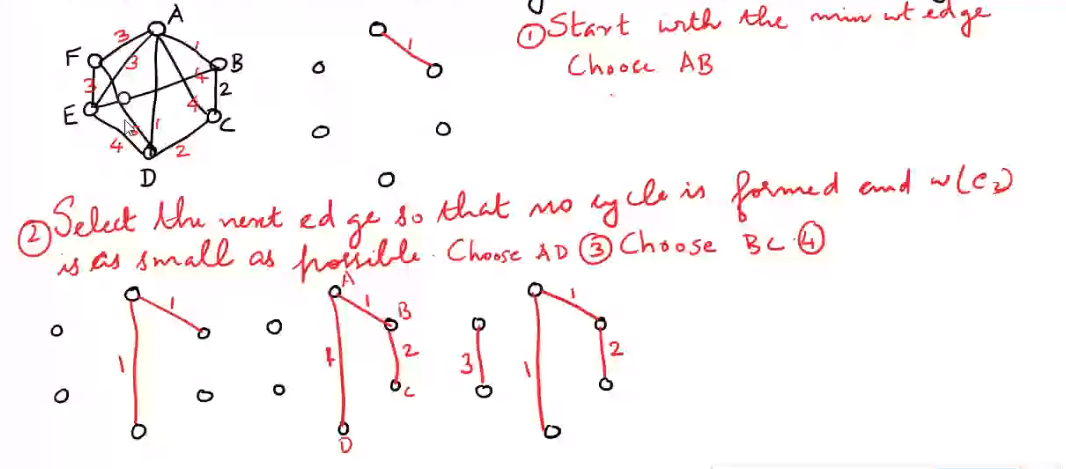 A
3
F
3
1
B
4
3
2
4
E
C
3
1
4
2
D
1
① Start with the min wt edge
Choose AB
② Select the next edge so that no cycle is formed and w(e₂)
is as small as possible. Choose AD ③ Choose BC ④
1
1
A
1
B
2
C
D
3
1
1
2